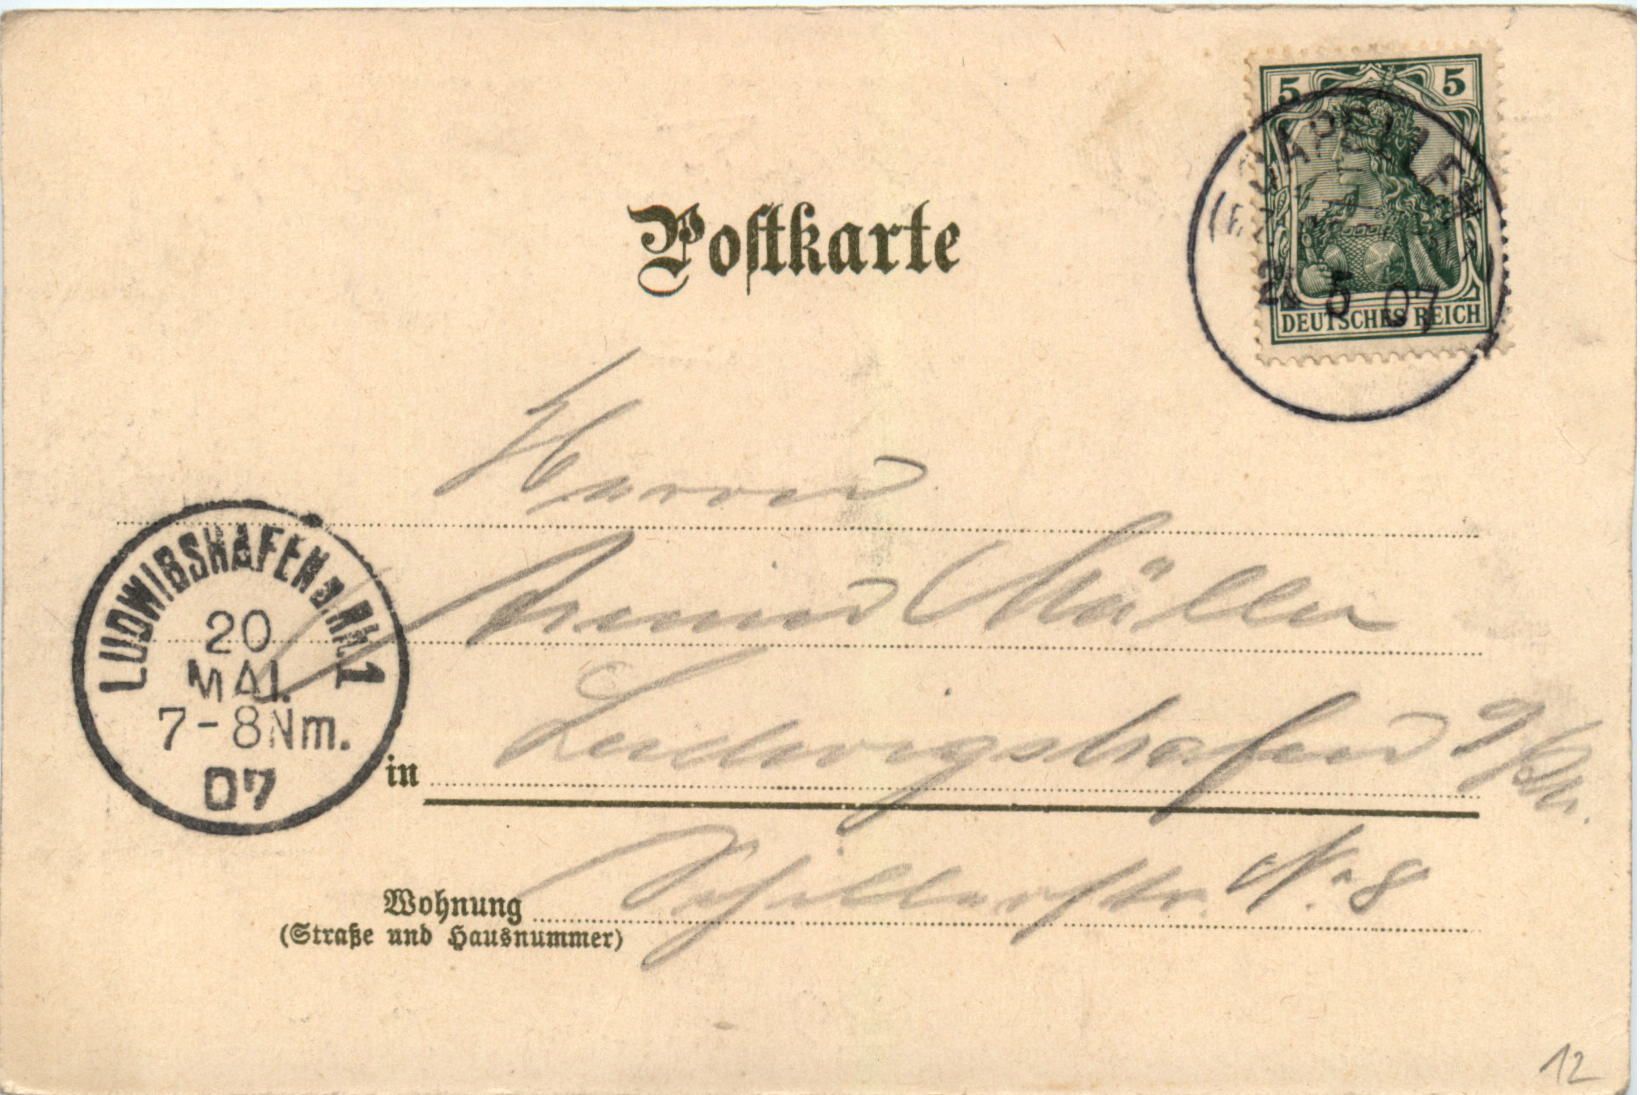 5 5
DEUTSCHES REICH
CAPELLEN
5 07
Postkarte
Herrn
Armin Müller
LUDWIGSHAFEN a. Rh. 1
20
MAI.
7-8Nm.
07
in Ludwigshafen a/Rh.
Wohnung Schillerstr. N. 8
(Straße und Hausnummer)
12